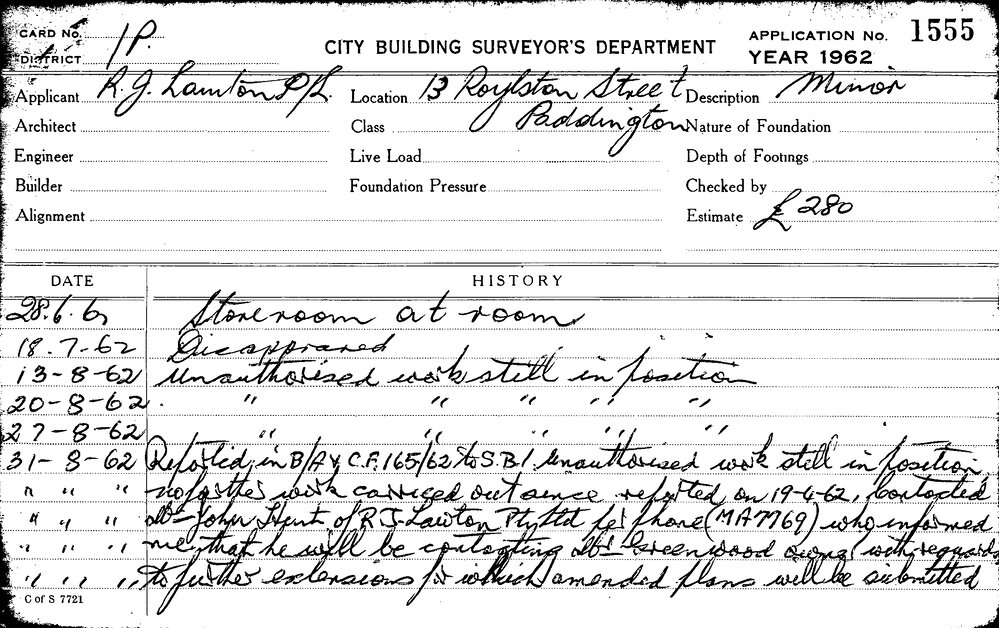 CARD No. 1P.
DISTRICT
CITY BUILDING SURVEYOR'S DEPARTMENT
APPLICATION No. 1555
YEAR 1962
Applicant R. J. Lawton P/L. Location 13 Roylston Street Description Minor
Architect Class Paddington Nature of Foundation
Engineer Live Load Depth of Footings
Builder Foundation Pressure Checked by
Alignment Estimate £280
DATE HISTORY
28.6.6 Storeroom at room
18.7-62 Disapproved
13-8-62 Unauthorised work still in position
20-8-62. " " " " "
27-8-62 " " " " "
31-8-62 Reported in B/A & C.F. 165/62 to S.B.I. Unauthorised work still in position
" " " no further work carried out since reported on 19-4-62, Contacted
" " " John Hunt of R J. Lawton Pty Ltd per phone (MA7769) who informed
" " " me that he will be contacting Greenwood owner with regards
" " " to further extensions for which amended plans will be submitted
C of S 7721